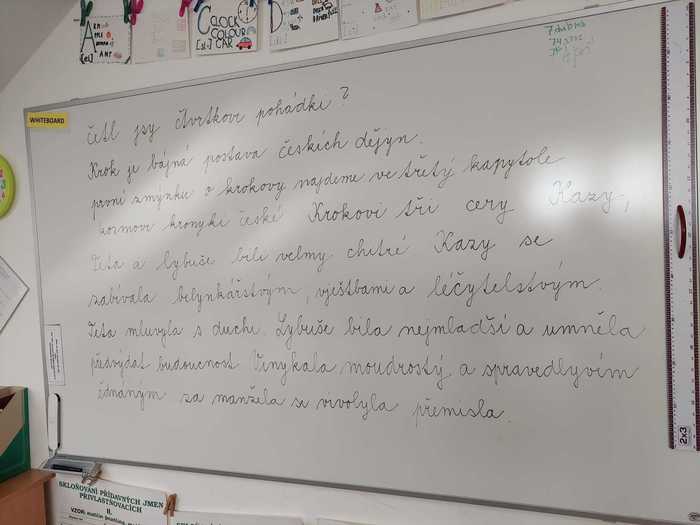 CLOCK
COLOUR
CAR
[el]
WHITEBOARD
četl jsy čtvrtkove pohádki?
Krok je bájná postava českích dějyn.
první zmýnku o krokovy najdeme ve třetý kapytole
kozmovi kronyki české Krokovi tři cery Kazy,
Teta a Lybuše bili velmy chitré Kazy se
zabívala belynkářstvým, vještbami a léčytelstvým.
Teta mluvyla s duchi. Lybuše bila nejmladší a umněla
předvýdat budoucnost Vinykala moudrostý a spravedlyvím
jednáným za manžela si vivolyla přemisla.
2x3
SKLOŇOVÁNÍ PŘÍDAVNÝCH JMEN
PŘIVLASTŇOVACÍCH
II.